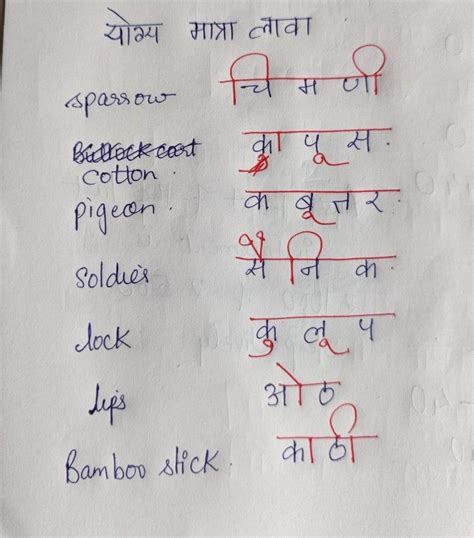 योग्य मात्रा लावा
sparrow चिमणी
cotton. कापूस.
pigeon. कबूतर.
soldiers सैनिक.
lock कुलूप
lips ओठ
Bamboo stick. काठी